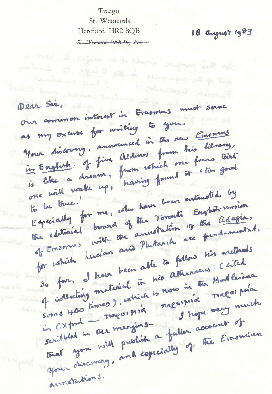 Treago
St. Weonards
Hereford HR2 8QB
18 August 1983
Dear Sir,
Our common interest in Erasmus must serve
as my excuse for writing to you.
Your discovery, announced in the new Erasmus
in English of five Aldines from his library,
is like a dream, from which one fears that
one will wake up, having found it 'too good
to be true'.
Especially for me, who have been entrusted by
the editorial board of the Toronto English version
of Erasmus with the annotation of the Adagia,
for which Lucian and Plutarch are fundamental.
So far, I have been able to follow his methods
of collecting material in his Athenaeus (cited
some 400 times), which is now in the Bodleian
in Oxford — παροιμία παροιμία παροιμία
scribbled in the margins — I hope very much
that you will publish a fuller account of
your discovery, and especially of the Erasmian
annotations.